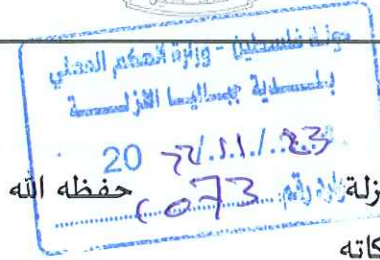 دولة فلسطين - وزارة الحكم المحلي
بلدية جباليا النزلة
20 22/11/23
زلة وارد رقم 2073 حفظه الله
كاته